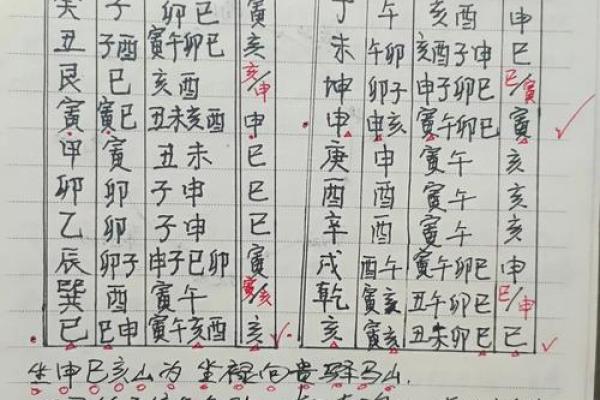 癸 子 卯巳 寅 丁 午 亥酉 申
丑 子酉 寅午卯巳 亥 未 午卯 亥酉子申 巳
艮 巳 亥酉 亥/申 坤 卯子 申子卯巳 巳/寅
寅 寅巳 丑未亥酉 申 申 申亥 寅午卯巳 寅
甲 寅 丑未 巳 庚 申 寅午 亥
卯 卯 子申 巳 酉 酉 寅午 亥
乙 卯 子申 巳 辛 酉 寅午 亥
辰 卯子 申子巳卯 寅 戌 酉午 寅午卯巳 申
巽 酉 寅午 寅/亥 乾 寅亥 丑午卯巳 巳/申
巳 巳申 寅午亥酉 亥 亥 寅亥 丑未卯巳 巳
坐申巳亥山为坐禄向贵驿马山.